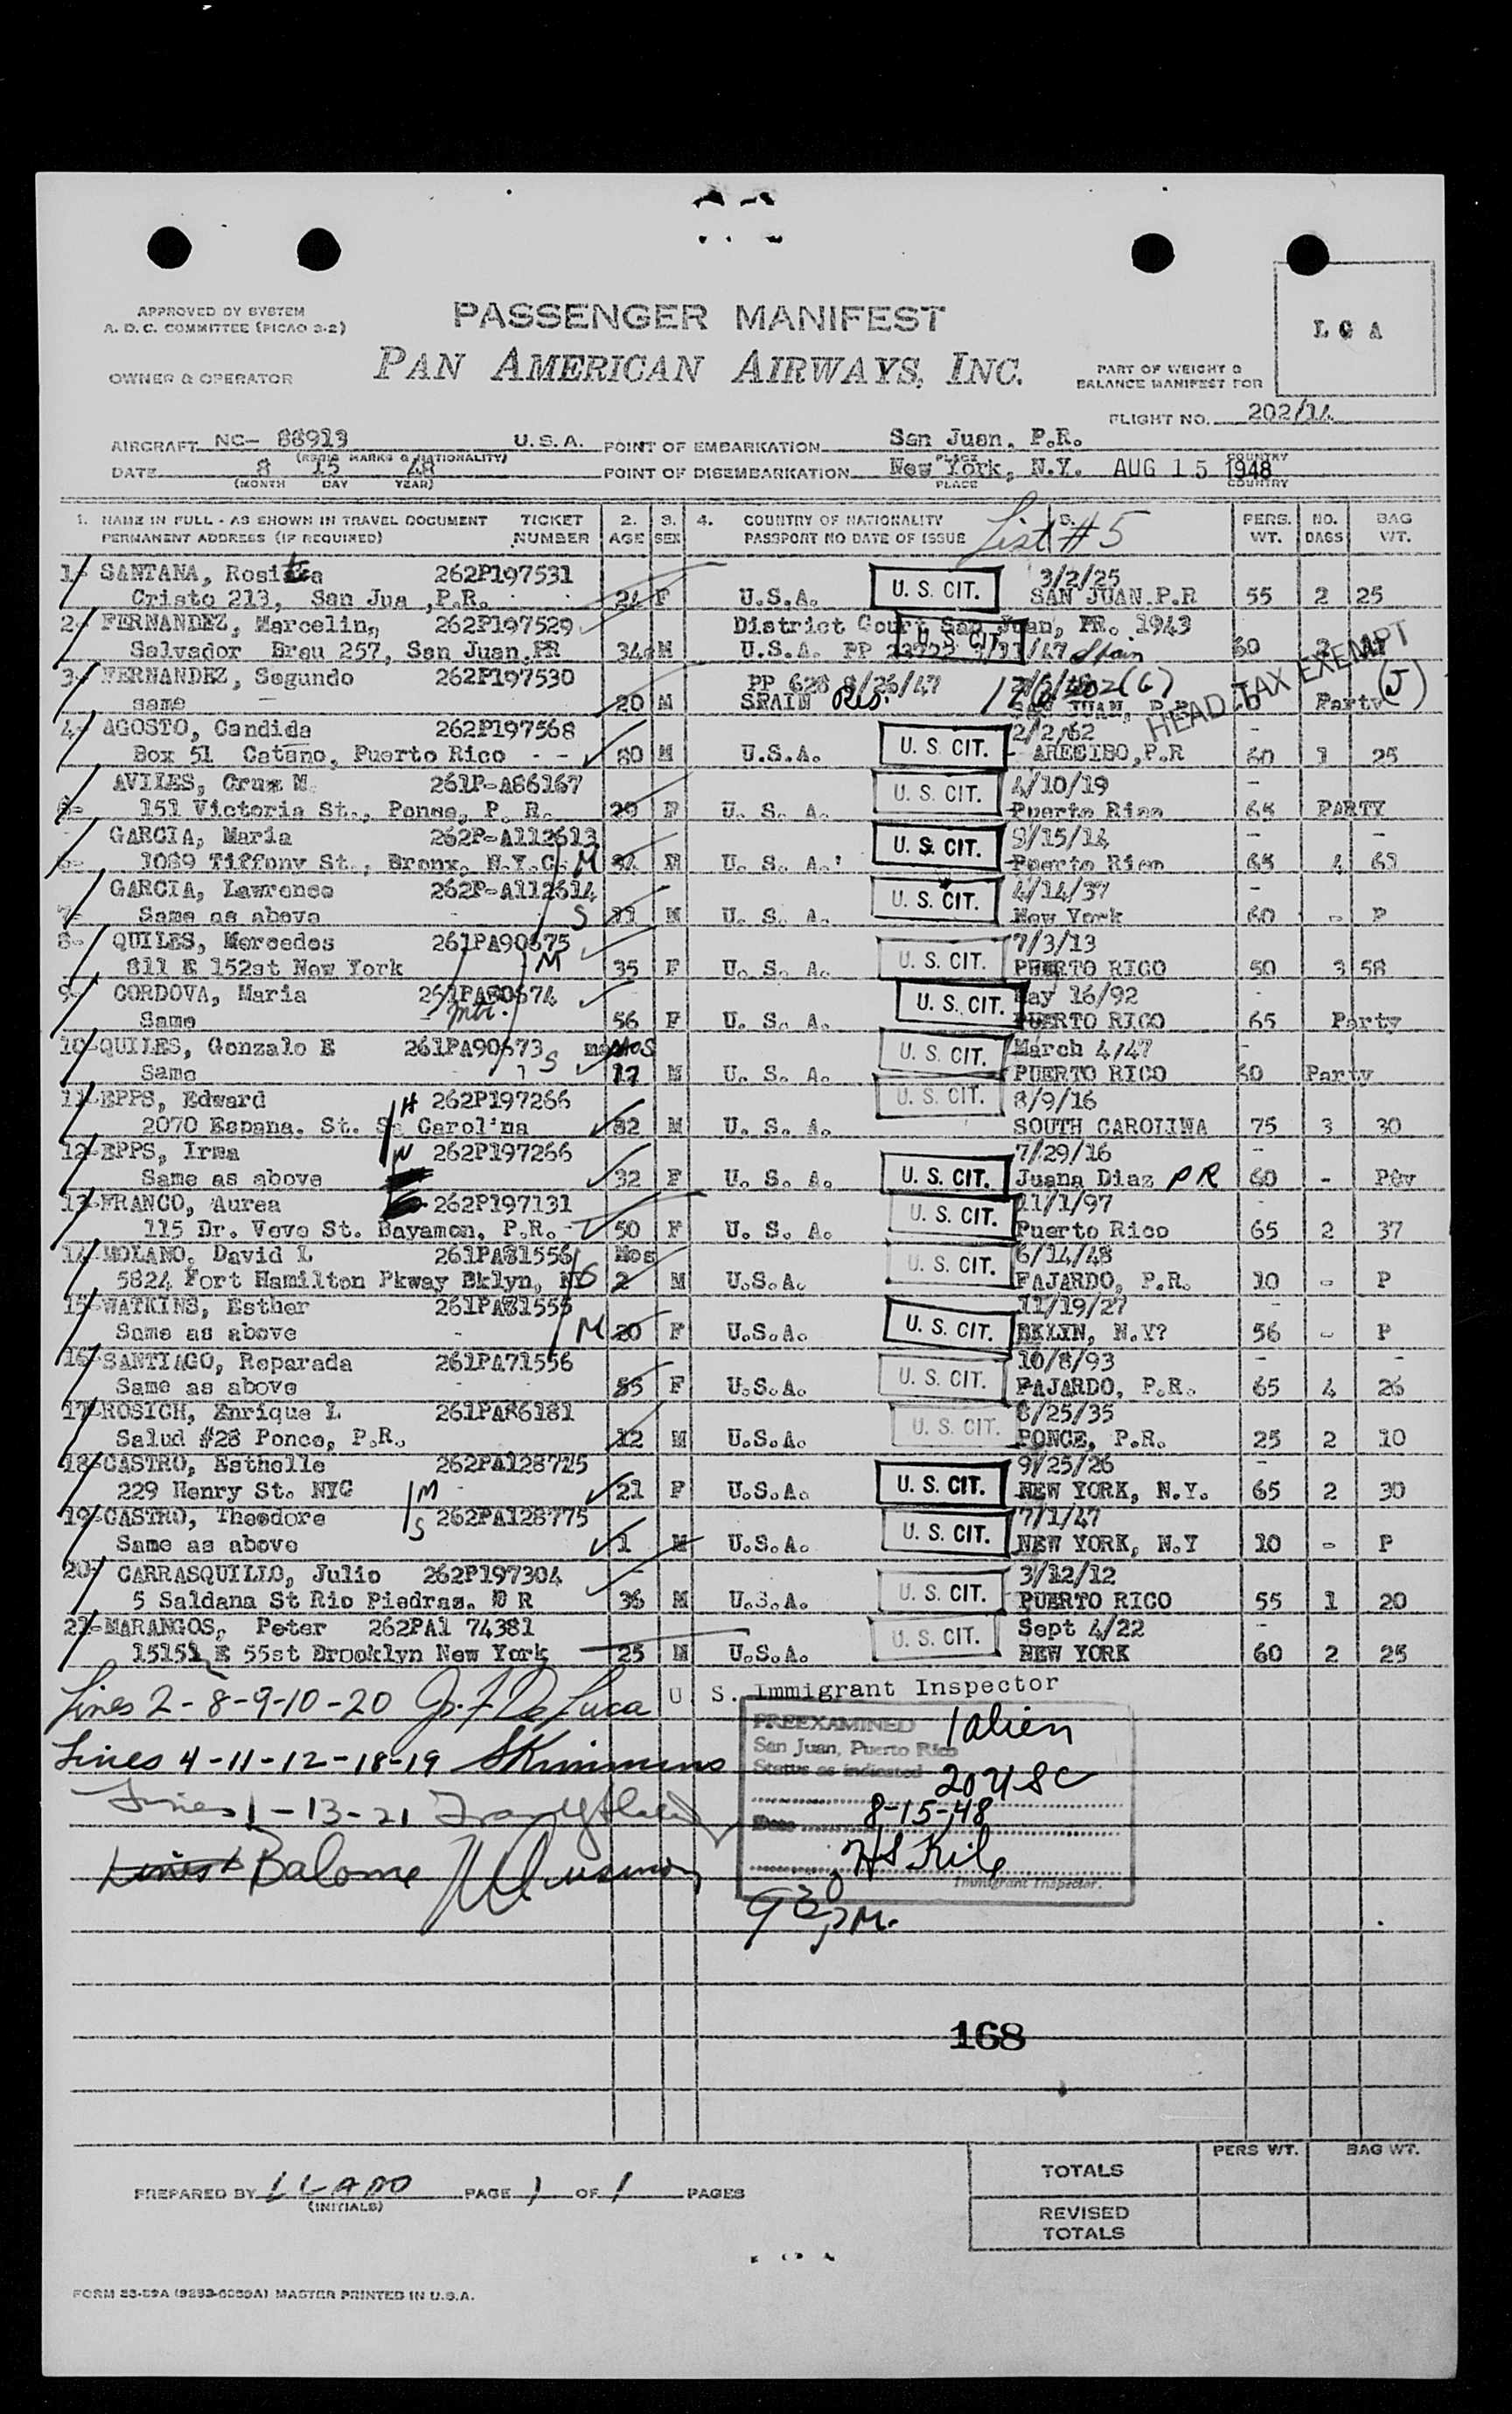 APPROVED BY SYSTEM
A. D. C. COMMITTEE (PICAO 3-2)
OWNER & OPERATOR
PASSENGER MANIFEST
PAN AMERICAN AIRWAYS, INC.
L G A
PART OF WEIGHT &
BALANCE MANIFEST FOR
FLIGHT NO. 202/14
AIRCRAFT NC- 88913 U.S.A. POINT OF EMBARKATION San Juan, P.R.
(REGIS MARKS & NATIONALITY) PLACE COUNTRY
DATE 8 15 48 POINT OF DISEMBARKATION New York, N.Y. AUG 15 1948
(MONTH DAY YEAR) PLACE COUNTRY
1. NAME IN FULL - AS SHOWN IN TRAVEL DOCUMENT TICKET 2. 3. 4. COUNTRY OF NATIONALITY 5. PERS. NO. BAG
PERMANENT ADDRESS (IF REQUIRED) NUMBER AGE SEX PASSPORT NO DATE OF ISSUE List #5 WT. BAGS WT.
1- SANTANA, Rosita 262P197531 U. S. CIT. 3/2/25
Cristo 213, San Jua ,P.R. 24 F U.S.A. SAN JUAN.P.R 55 2 25
2- FERNANDEZ, Marcelin, 262P197529 District Court San Juan, PR. 1943
Salvador Brau 257, San Juan,PR 34 M U.S.A. PP U. S. CIT. /47 Spain 60
3- FERNANDEZ, Segundo 262P197530 PP 628 8/26/47
same 20 M SPAIN Res. SAN JUAN, P.R. HEAD TAX EXEMPT Party (J)
4- AGOSTO, Candida 262P197568 U. S. CIT. 2/2/62
Box 51 Catano, Puerto Rico - - 80 M U.S.A. ARECIBO,P.R 60 1 25
AVILES, Cruz M. 261P-A86167 U. S. CIT. 4/10/19
151 Victoria St., Ponse, P. R. 29 F U. S. A. Puerto Rico 65 PARTY
GARCIA, Maria 262P-A112613 U. S. CIT. 9/15/14
6- 1089 Tiffony St., Bronx, N.Y.C. M M U. S. A. Puerto Rico 65 4 61
GARCIA, Lawrence 262P-A112614 U. S. CIT. 4/14/37
7- Same as above S 11 M U. S. A. New York 60 - P
8- QUILES, Mercedes 261PA90675 U. S. CIT. 7/3/13
811 E 152st New York M 35 F U. S. A. PUERTO RICO 50 3 58
9- CORDOVA, Maria 261PA90674 U. S. CIT. May 16/92
Same mtr. 56 F U. S. A. PUERTO RICO 65 Party
10-QUILES, Gonzalo E 261PA90673 mos U. S. CIT. March 4/47
Same S 17 M U. S. A. PUERTO RICO 60 Party
11-EPPS, Edward H 262P197266 U. S. CIT. 8/9/16
2070 Espana. St. So Carol'na 32 M U. S. A. SOUTH CAROLINA 75 3 30
12-EPPS, Irma W 262P197266 7/29/16
Same as above 32 F U. S. A. U. S. CIT. Juana Diaz PR 60 -
13-FRANCO, Aurea 262P197131 U. S. CIT. 11/1/97
115 Dr. Veve St. Bayamon, P.R. 50 F U. S. A. Puerto Rico 65 2 37
14-MOLANO, David L 261PA81556 Mos U. S. CIT. 6/14/48
5824 Fort Hamilton Pkway Bklyn, NY S 2 M U.S.A. FAJARDO, P.R. 10 - P
15-WATKINS, Esther 261PA81555 U. S. CIT. 11/19/27
Same as above M 20 F U.S.A. BKLYN, N.Y? 56 - P
16-SANTIAGO, Reparada 261PA71556 U. S. CIT. 10/8/93
Same as above 55 F U.S.A. FAJARDO, P.R. 65 4 26
17-ROSICH, Enrique L 261PA86181 U. S. CIT. 8/25/35
Salud #28 Ponce, P.R. 12 M U.S.A. PONCE, P.R. 25 2 10
18-CASTRO, Esthelle 262PA128775 U. S. CIT. 9/25/26
229 Henry St. NYC M 21 F U.S.A. NEW YORK, N.Y. 65 2 30
19-CASTRO, Theodore S 262PA128775 U. S. CIT. 7/1/47
Same as above 1 M U.S.A. NEW YORK, N.Y 10 - P
20- CARRASQUILLO, Julio 262P197304 U. S. CIT. 3/12/12
5 Saldana St Rio Piedras. P R 36 M U.S.A. PUERTO RICO 55 1 20
21-MARANGOS, Peter 262PA1 74381 U. S. CIT. Sept 4/22
1515 E 55st Brooklyn New York 25 M U.S.A. NEW YORK 60 2 25
Lines 2-8-9-10-20 Jo. F. De Luca U. S. Immigrant Inspector
PREEXAMINED 1 alien
San Juan, Puerto Rico
Lines 4-11-12-18-19
Status as indicated 20 USC
Lines 1-13-21
Date 8-15-48
Balome
Immigrant Inspector.
930 PM.
168
PREPARED BY LLADO PAGE 1 OF 1 PAGES
(INITIALS)
PERS WT. BAG WT.
TOTALS
REVISED
TOTALS
FORM 23-59A (9253-6059A) MASTER PRINTED IN U.S.A.